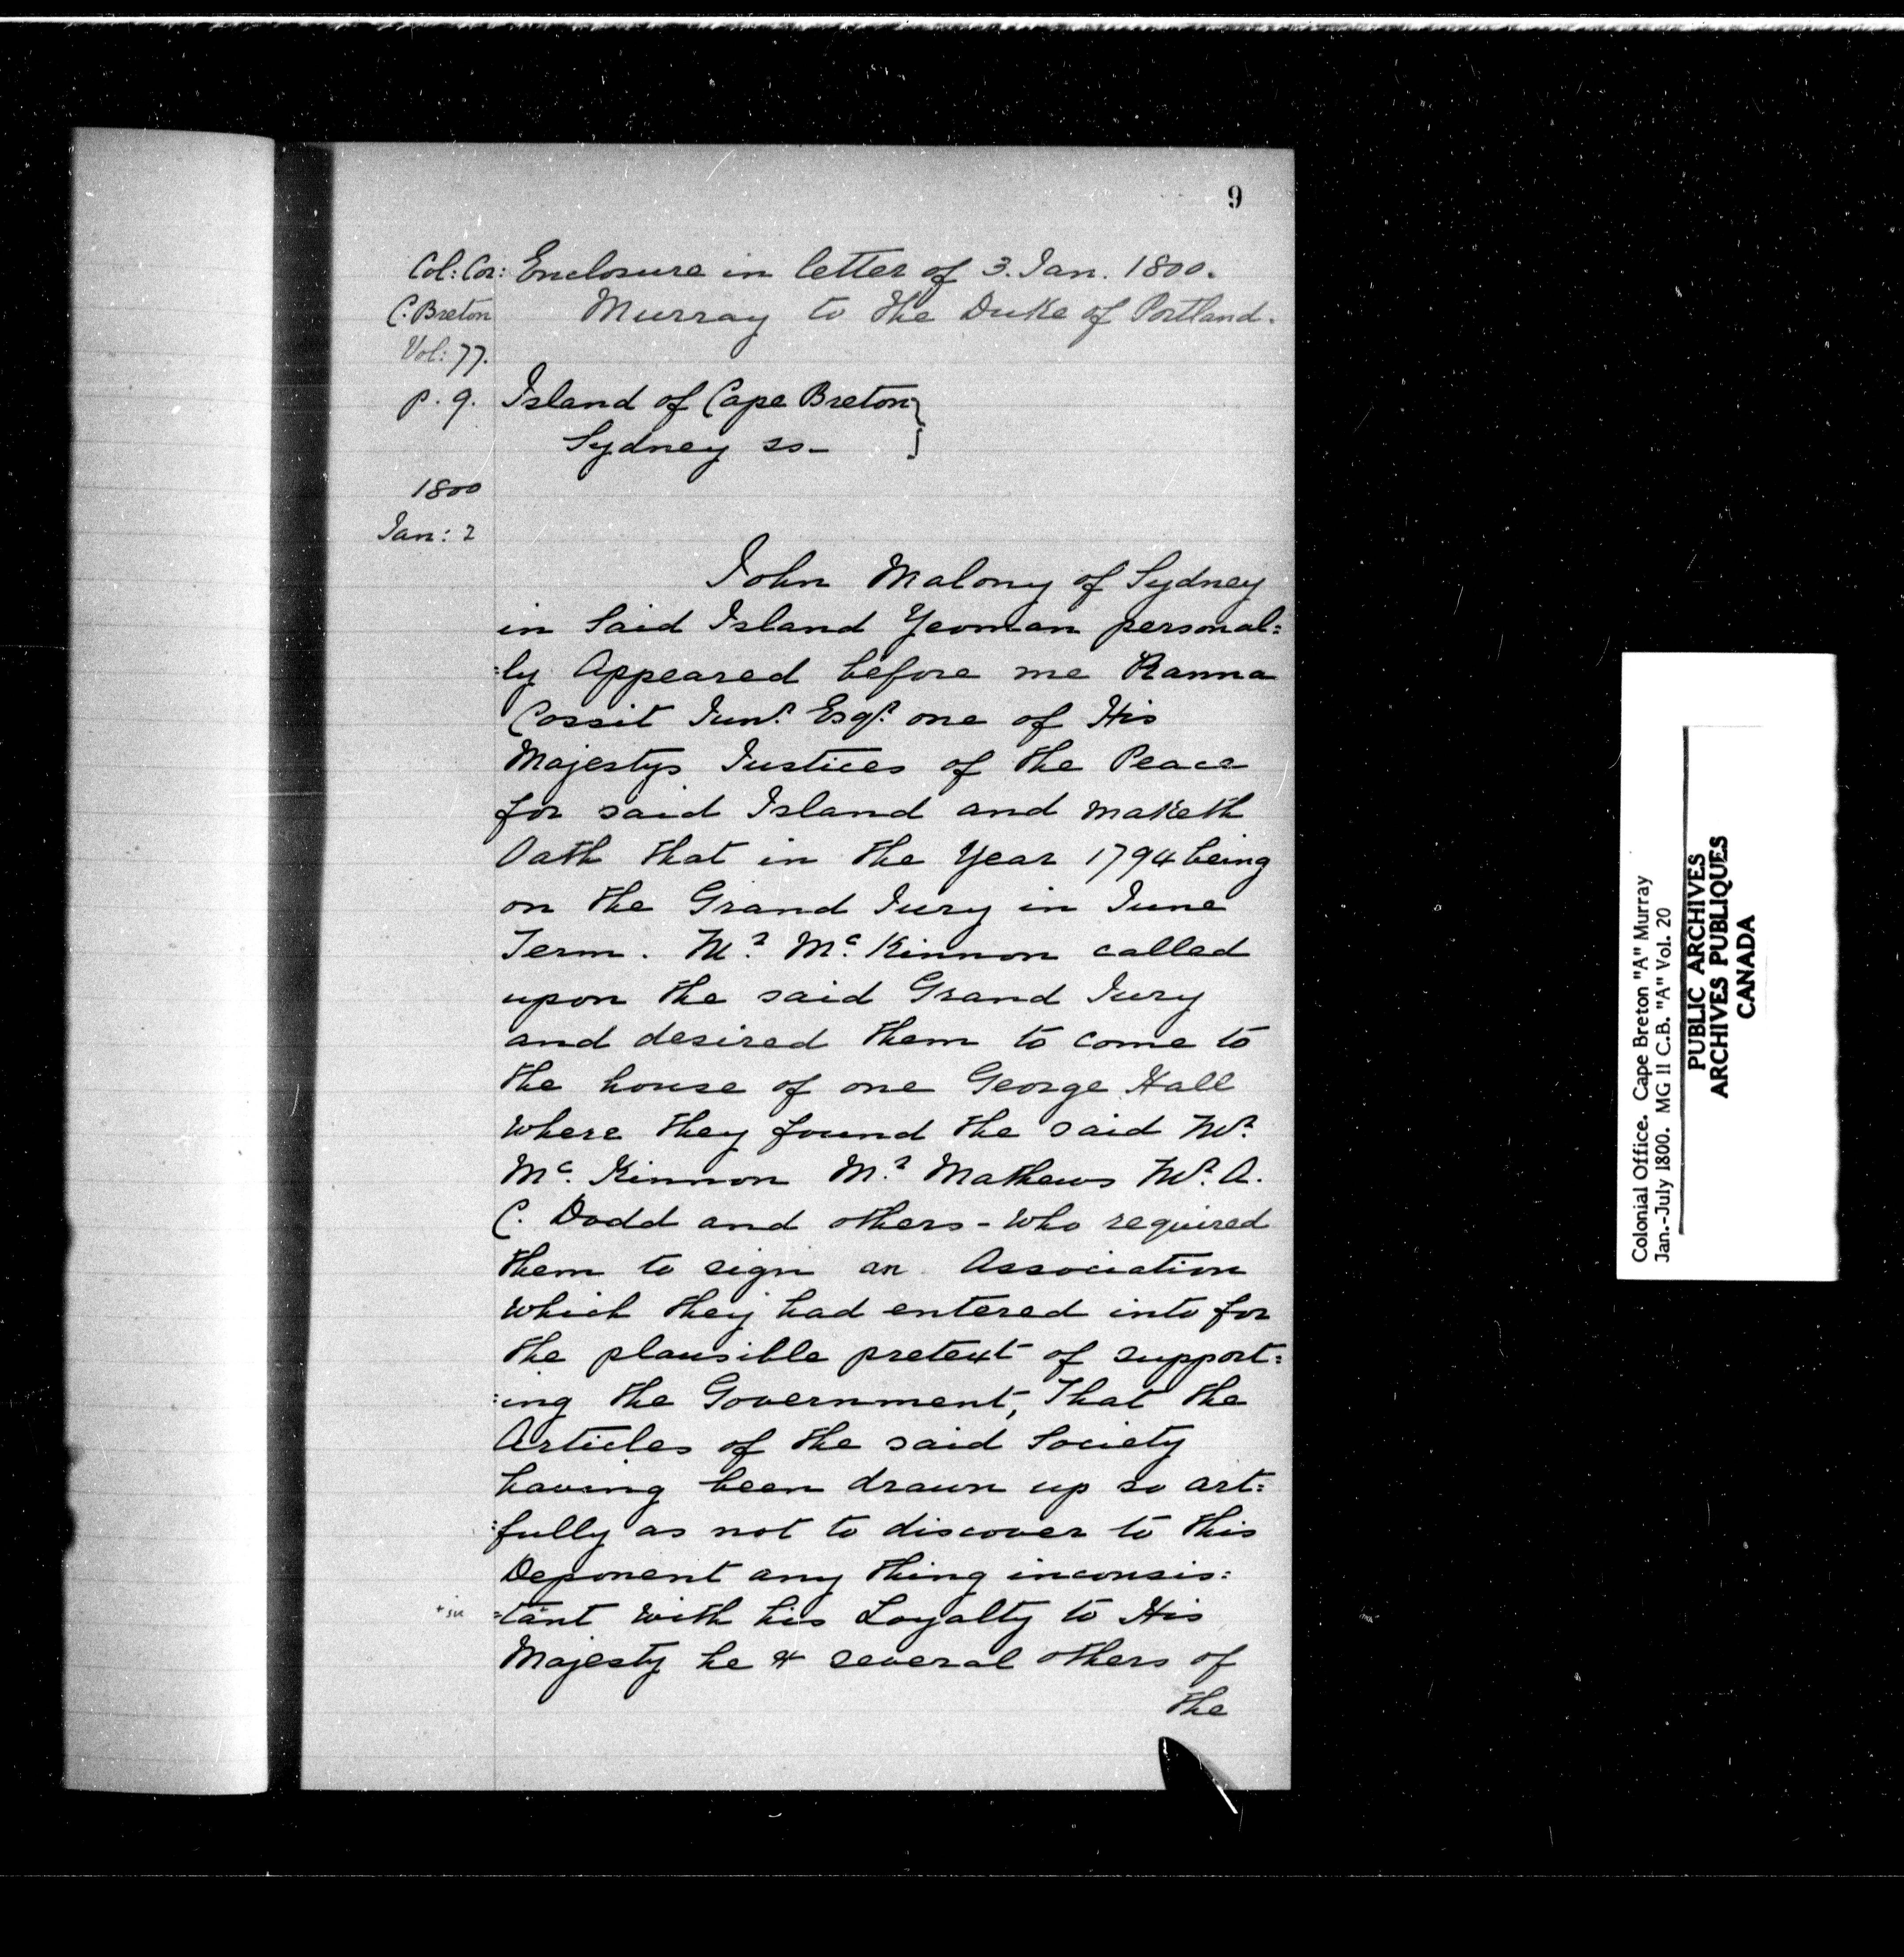 9
Col: Cor: Enclosure in letter of 3. Jan. 1800.
C. Breton Murray to the Duke of Portland.
Vol: 77.
p. 9. Island of Cape Breton }
Sydney ss-
1800
Jan: 2
John Malony of Sydney
in Said Island Yeoman personal=
=ly Appeared before me Ranna
Cossit Junr. Esqr. one of His
Majestys Justices of the Peace
for said Island and maketh
Oath that in the Year 1794 being
on the Grand Jury in June
Term. Mr. Mc. Kinnon called
upon the said Grand Jury
and desired them to come to
the house of one George Hall
where they found the said Mr.
Mc. Kinnon Mr. Mathews Mr. A.
C. Dodd and others - who required
them to sign an Association
which they had entered into for
the plausible pretext of support=
=ing the Government, That the
Articles of the said Society
having been drawn up so art=
=fully as not to discover to this
Deponent any thing inconsis=
+ sic =tant with his Loyalty to His
Majesty he & several others of
the
Colonial Office. Cape Breton "A" Murray
Jan.-July 1800. MG 11 C.B. "A" Vol. 20
PUBLIC ARCHIVES
ARCHIVES PUBLIQUES
CANADA